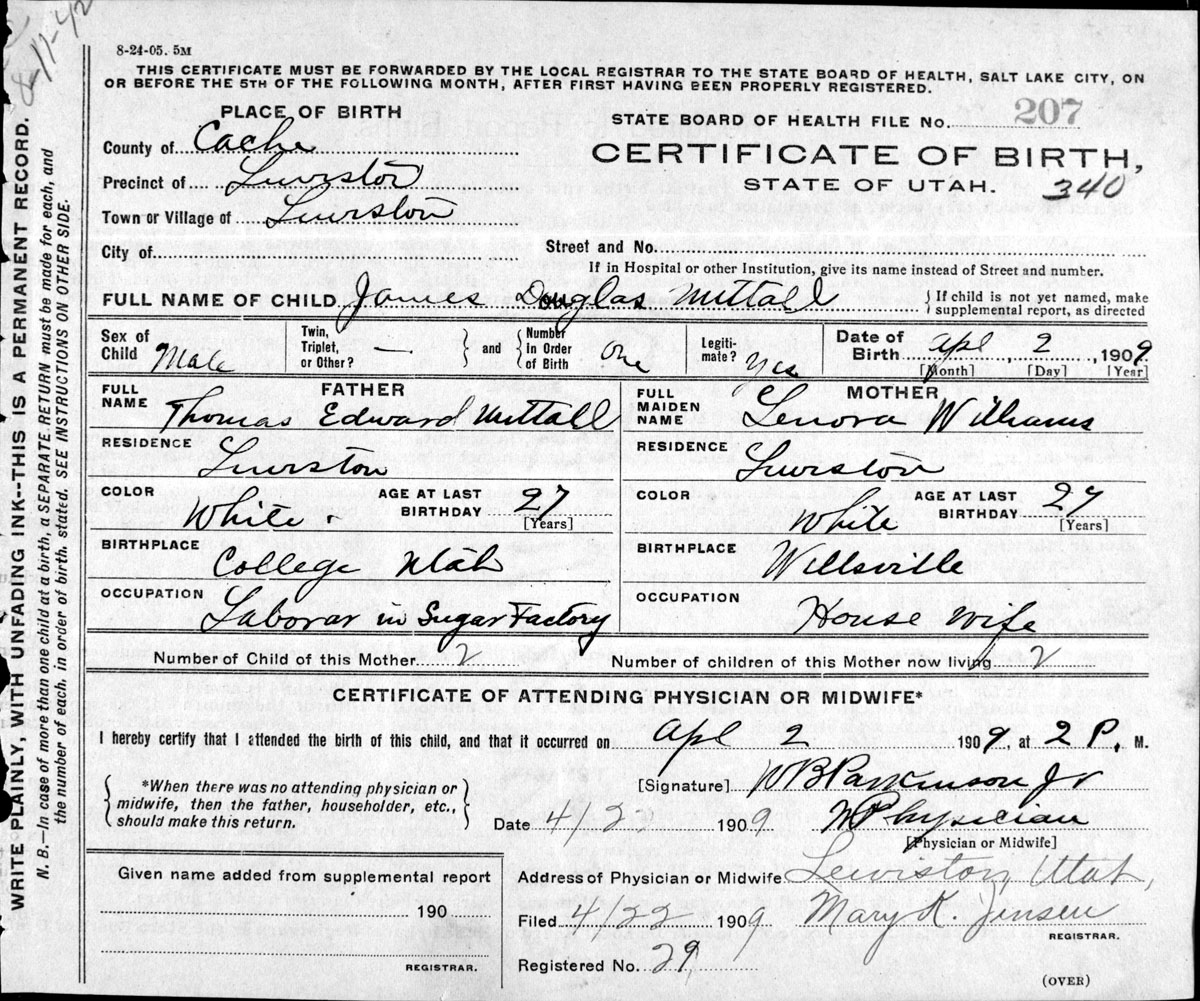 8-11-42
8-24-05. 5M
THIS CERTIFICATE MUST BE FORWARDED BY THE LOCAL REGISTRAR TO THE STATE BOARD OF HEALTH, SALT LAKE CITY, ON
OR BEFORE THE 5TH OF THE FOLLOWING MONTH, AFTER FIRST HAVING BEEN PROPERLY REGISTERED.
PLACE OF BIRTH
STATE BOARD OF HEALTH FILE No. 207
County of Cache
CERTIFICATE OF BIRTH,
Precinct of Lewiston
STATE OF UTAH. 340
Town or Village of Lewiston
City of
Street and No.
If in Hospital or other Institution, give its name instead of Street and number.
FULL NAME OF CHILD James Douglas Nuttall { If child is not yet named, make
supplemental report, as directed
Sex of Child Male
Twin, Triplet, or Other? — } and { Number in Order of Birth One
Legiti-mate? Yes
Date of Birth Apl, 2, 1909
[Month] [Day] [Year]
FATHER
FULL NAME Thomas Edward Nuttall
MOTHER
FULL MAIDEN NAME Lenora Williams
RESIDENCE Lewiston
RESIDENCE Lewiston
COLOR White. AGE AT LAST BIRTHDAY 27 [Years]
COLOR White AGE AT LAST BIRTHDAY 27 [Years]
BIRTHPLACE College Utah
BIRTHPLACE Wellsville
OCCUPATION Laborar in Sugar Factory
OCCUPATION House Wife
Number of Child of this Mother 2
Number of children of this Mother now living 2
CERTIFICATE OF ATTENDING PHYSICIAN OR MIDWIFE*
I hereby certify that I attended the birth of this child, and that it occurred on Apl 2 1909, at 2 P. M.
{ *When there was no attending physician or
midwife, then the father, householder, etc.,
should make this return. }
[Signature] WB Parkinson Jr
Date 4/2 1909 Physician
[Physician or Midwife]
Given name added from supplemental report
190
REGISTRAR.
Address of Physician or Midwife Lewiston, Utah,
Filed 4/22 1909 Mary K. Jensen
REGISTRAR.
Registered No. 29
(OVER)
WRITE PLAINLY, WITH UNFADING INK--THIS IS A PERMANENT RECORD.
N. B.—In case of more than one child at a birth, a SEPARATE RETURN must be made for each, and
the number of each, in order of birth, stated. SEE INSTRUCTIONS ON OTHER SIDE.